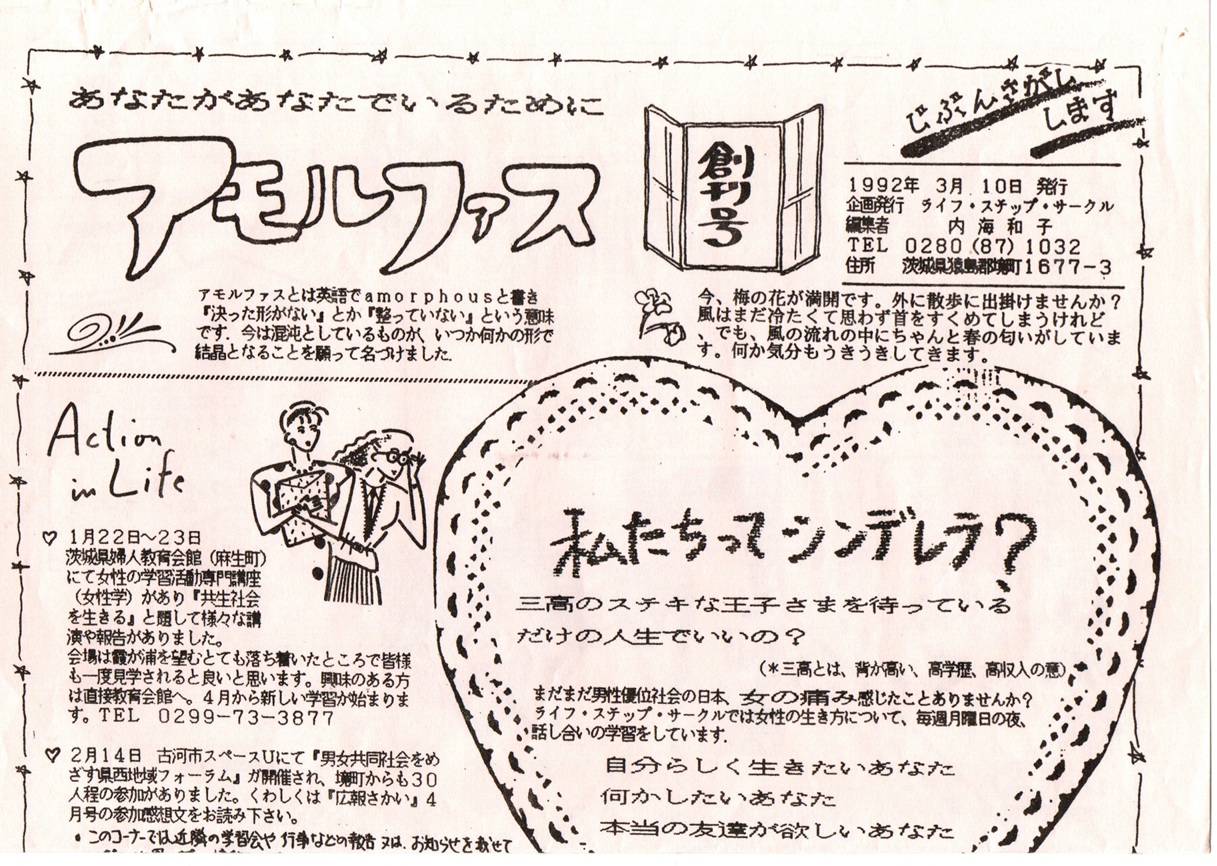 あなたがあなたでいるために
アモルファス
創刊号
じぶんさがし
します
1992年 3月 10日 発行
企画発行 ライフ・ステップ・サークル
編集者 内 海 和 子
TEL 0280 (87) 1032
住所 茨城県猿島郡境町1677-3
アモルファスとは英語でamorphousと書き
『決った形がない』とか『整っていない』という意味
です. 今は混沌としているものが、いつか何かの形で
結晶となることを願って名づけました.
今、梅の花が満開です。外に散歩に出掛けませんか？
風はまだ冷たくて思わず首をすくめてしまうけれど
、でも、風の流れの中にちゃんと春の匂いがしていま
す。何か気分もうきうきしてきます。
Action
in Life
♡ 1月22日～23日
茨城県婦人教育会館（麻生町）
にて女性の学習活動専門講座
（女性学）があり『共生社会
を生きる』と題して様々な講
演や報告がありました。
会場は霞が浦を望むとても落ち着いたところで皆様
も一度見学されると良いと思います。興味のある方
は直接教育会館へ。4月から新しい学習が始まりま
す。TEL 0299-73-3877
♡ 2月14日 古河市スペースUにて『男女共同社会をめ
ざす県西地域フォーラム』が開催され、境町からも30
人程の参加がありました。くわしくは『広報さかい』4
月号の参加感想文をお読み下さい。
• このコーナーでは近隣の学習会や行事などの報告又は、お知らせを載せて
私たちって シンデレラ？
三高のステキな王子さまを待っている
だけの人生でいいの？
(＊三高とは、背が高い、高学歴、高収入の意)
まだまだ男性優位社会の日本、女の痛み感じたことありませんか？
ライフ・ステップ・サークルでは女性の生き方について、毎週月曜日の夜、
話し合いの学習をしています.
自分らしく生きたいあなた
何かしたいあなた
本当の友達が欲しいあなた